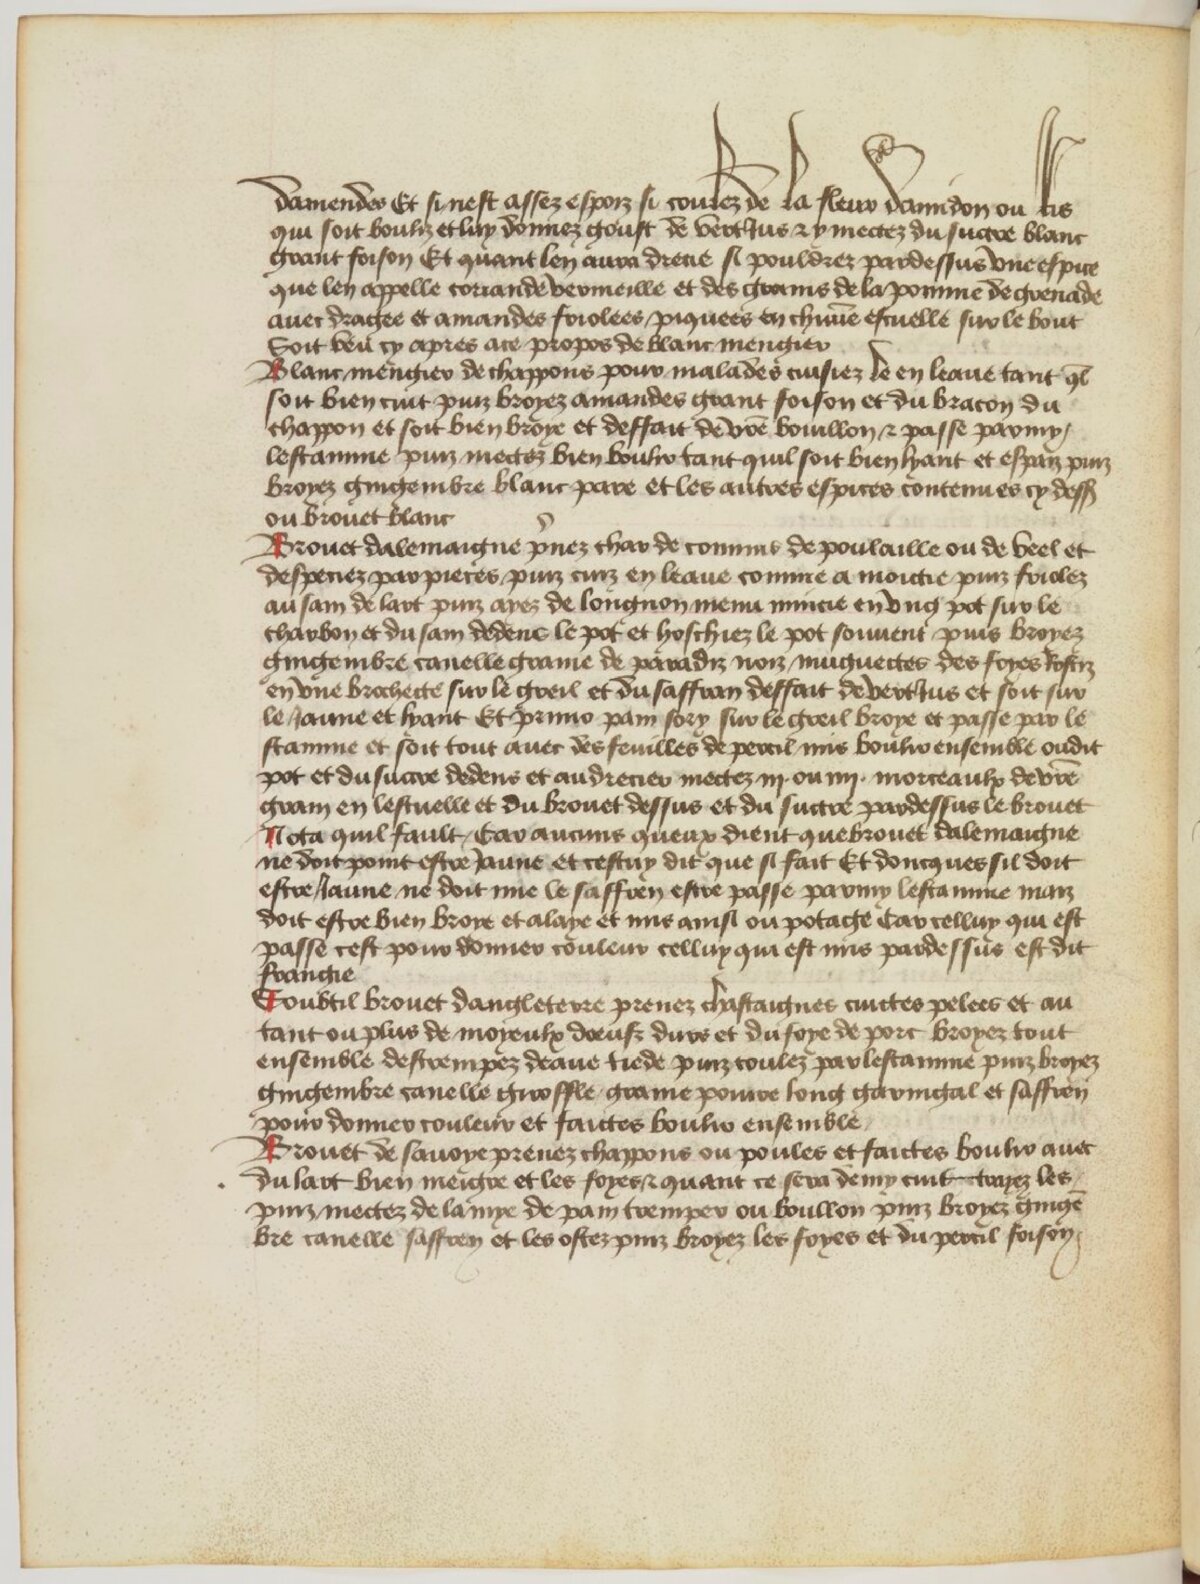 damendes Et si nest assez espoiz si coulez de la fleur damidon ou ris
qui soit boulu et luy donnez goust de vertjus & y mectez du succre blanc
grant foison Et quant len aura drecie si pouldrez pardessus une espice
que len appelle coriande vermeille et des grains de la pomme de grenade
avec dragee et amandes friolees piquees en chune escuelle sur le bout
Soit veu cy apres a ce propos de blanc mengier
Blanc mengier de chappons pour malades cuisiez le en leaue tant ql
soit bien cuit puiz broyez amandes grant foison et du bracon du
chappon et soit bien broye et deffait de vre bouillon & passe parmy
lestamine puiz mectez bien boulir tant quil soit bien lyant et espaiz puiz
broyez gingembre blanc pare et les autres espices contenues cy dess
ou brouet blanc
Brouet dalemaigne pnez char de connins de poulaille ou de veel et
despeciez par pieces puiz cuiz en leaue comme a moictie puiz friolez
au sain de lart puiz ayez de longnon menu mincie en ung pot sur le
charbon et du sain dedenc le pot et hoschiez le pot souvent puis broyez
gingembre canelle graine de paradiz noiz muguectes des foyes rostiz
en une brochecte sur le greil et du saffran deffait de vertjus et soit sur
le jaune et lyant Et primo pain sory sur le greil broye et passe par le
stamine et soit tout avec des feuilles de percil mis boulir ensemble oudit
pot et du succre dedens et au drecier mectez iij. ou iiij. morceaulx de vre
grain en lescuelle et du brouet dessus et du succre pardessus le brouet
Nota quil fault Car aucuns queux dient que brouet dalemaigne
ne doit point estre jaune et cestuy dit que si fait Et doncques sil doit
estre jaune ne doit mie le saffren estre passe parmy lestamine maiz
doit estre bien broye et alaye et mis ainsi ou potage Car celluy qui est
passe cest pour donner couleur celluy qui est mis pardessus est dit
frangie
Soubtil brouet dangleterre prenez chastaignes cuictes pelees et au
tant ou plus de moyeulx doeufz durs et du foye de porc broyez tout
ensemble destrempez deaue tiede puiz coulez par lestamine puiz broyez
gingembre canelle giroffle graine poivre long garingal et saffren
pour donner couleur et faictes boulir ensemble
Brouet de savoye prenez chappons ou poules et faictes boulir avec
du lart bien meigre et les foyes & quant ce sera demy cuit trayez les
puiz mectez de la mye de pain tremper ou boullon puiz broyez gingē
bre canelle saffren et les ostez puiz broyez les foyes et du percil foison